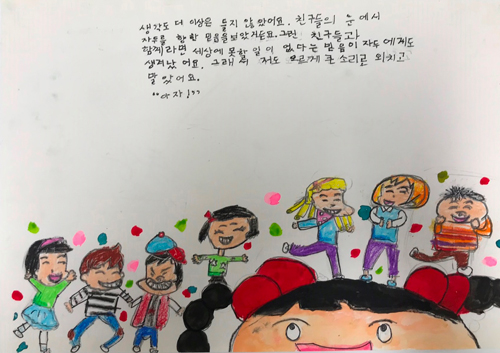 생각도 더 이상은 들지 않았어요. 친구들의 눈에서
자두를 향한 믿음을 보았거든요. 그런 친구들과
함께라면 세상에 못할 일이 없다는 믿음이 자두에게도
생겨났어요. 그래서 저도 모르게 큰 소리로 외치고
말았어요.
"아자!"